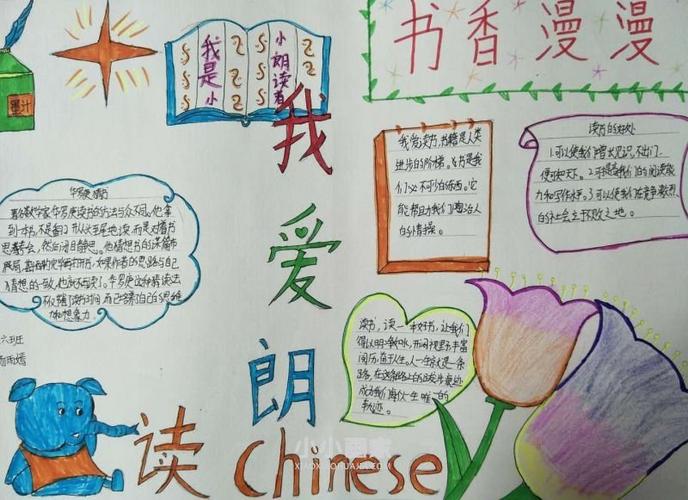 书香漫漫
墨汁
我是小
小朗读者
我
爱
朗
读
Chinese
我爱读书，书籍是人类
进步的阶梯。书是我
们必不可少的东西。它
能帮助我们陶冶人
的情操。
读书的好处
1.可以使我们增长见识，不出门，
便可知天下。2.可提高我们的阅读能
力和写作水平。3.可以使我们在竞争激烈
的社会立于不败之地。
数学家华罗庚读书的方法与众不同。他拿
到一本书，不是翻开从头至尾地读，而是对着书
思考一会，然后闭目静思。他猜想书的谋篇布
局，
如果作者的思路与自己
猜想的一致，他就不再读了。华罗庚这种猜读法
不仅节省了读书时间，而且培养了自己的思维
力和想象力。
读书，读一本好书，让我们
得以明净如水，开阔视野，丰富
阅历，益于人生。人一生就是一条
路，在这条路上的
成为我们每人一生唯一的
轨迹。
六班
小小画家